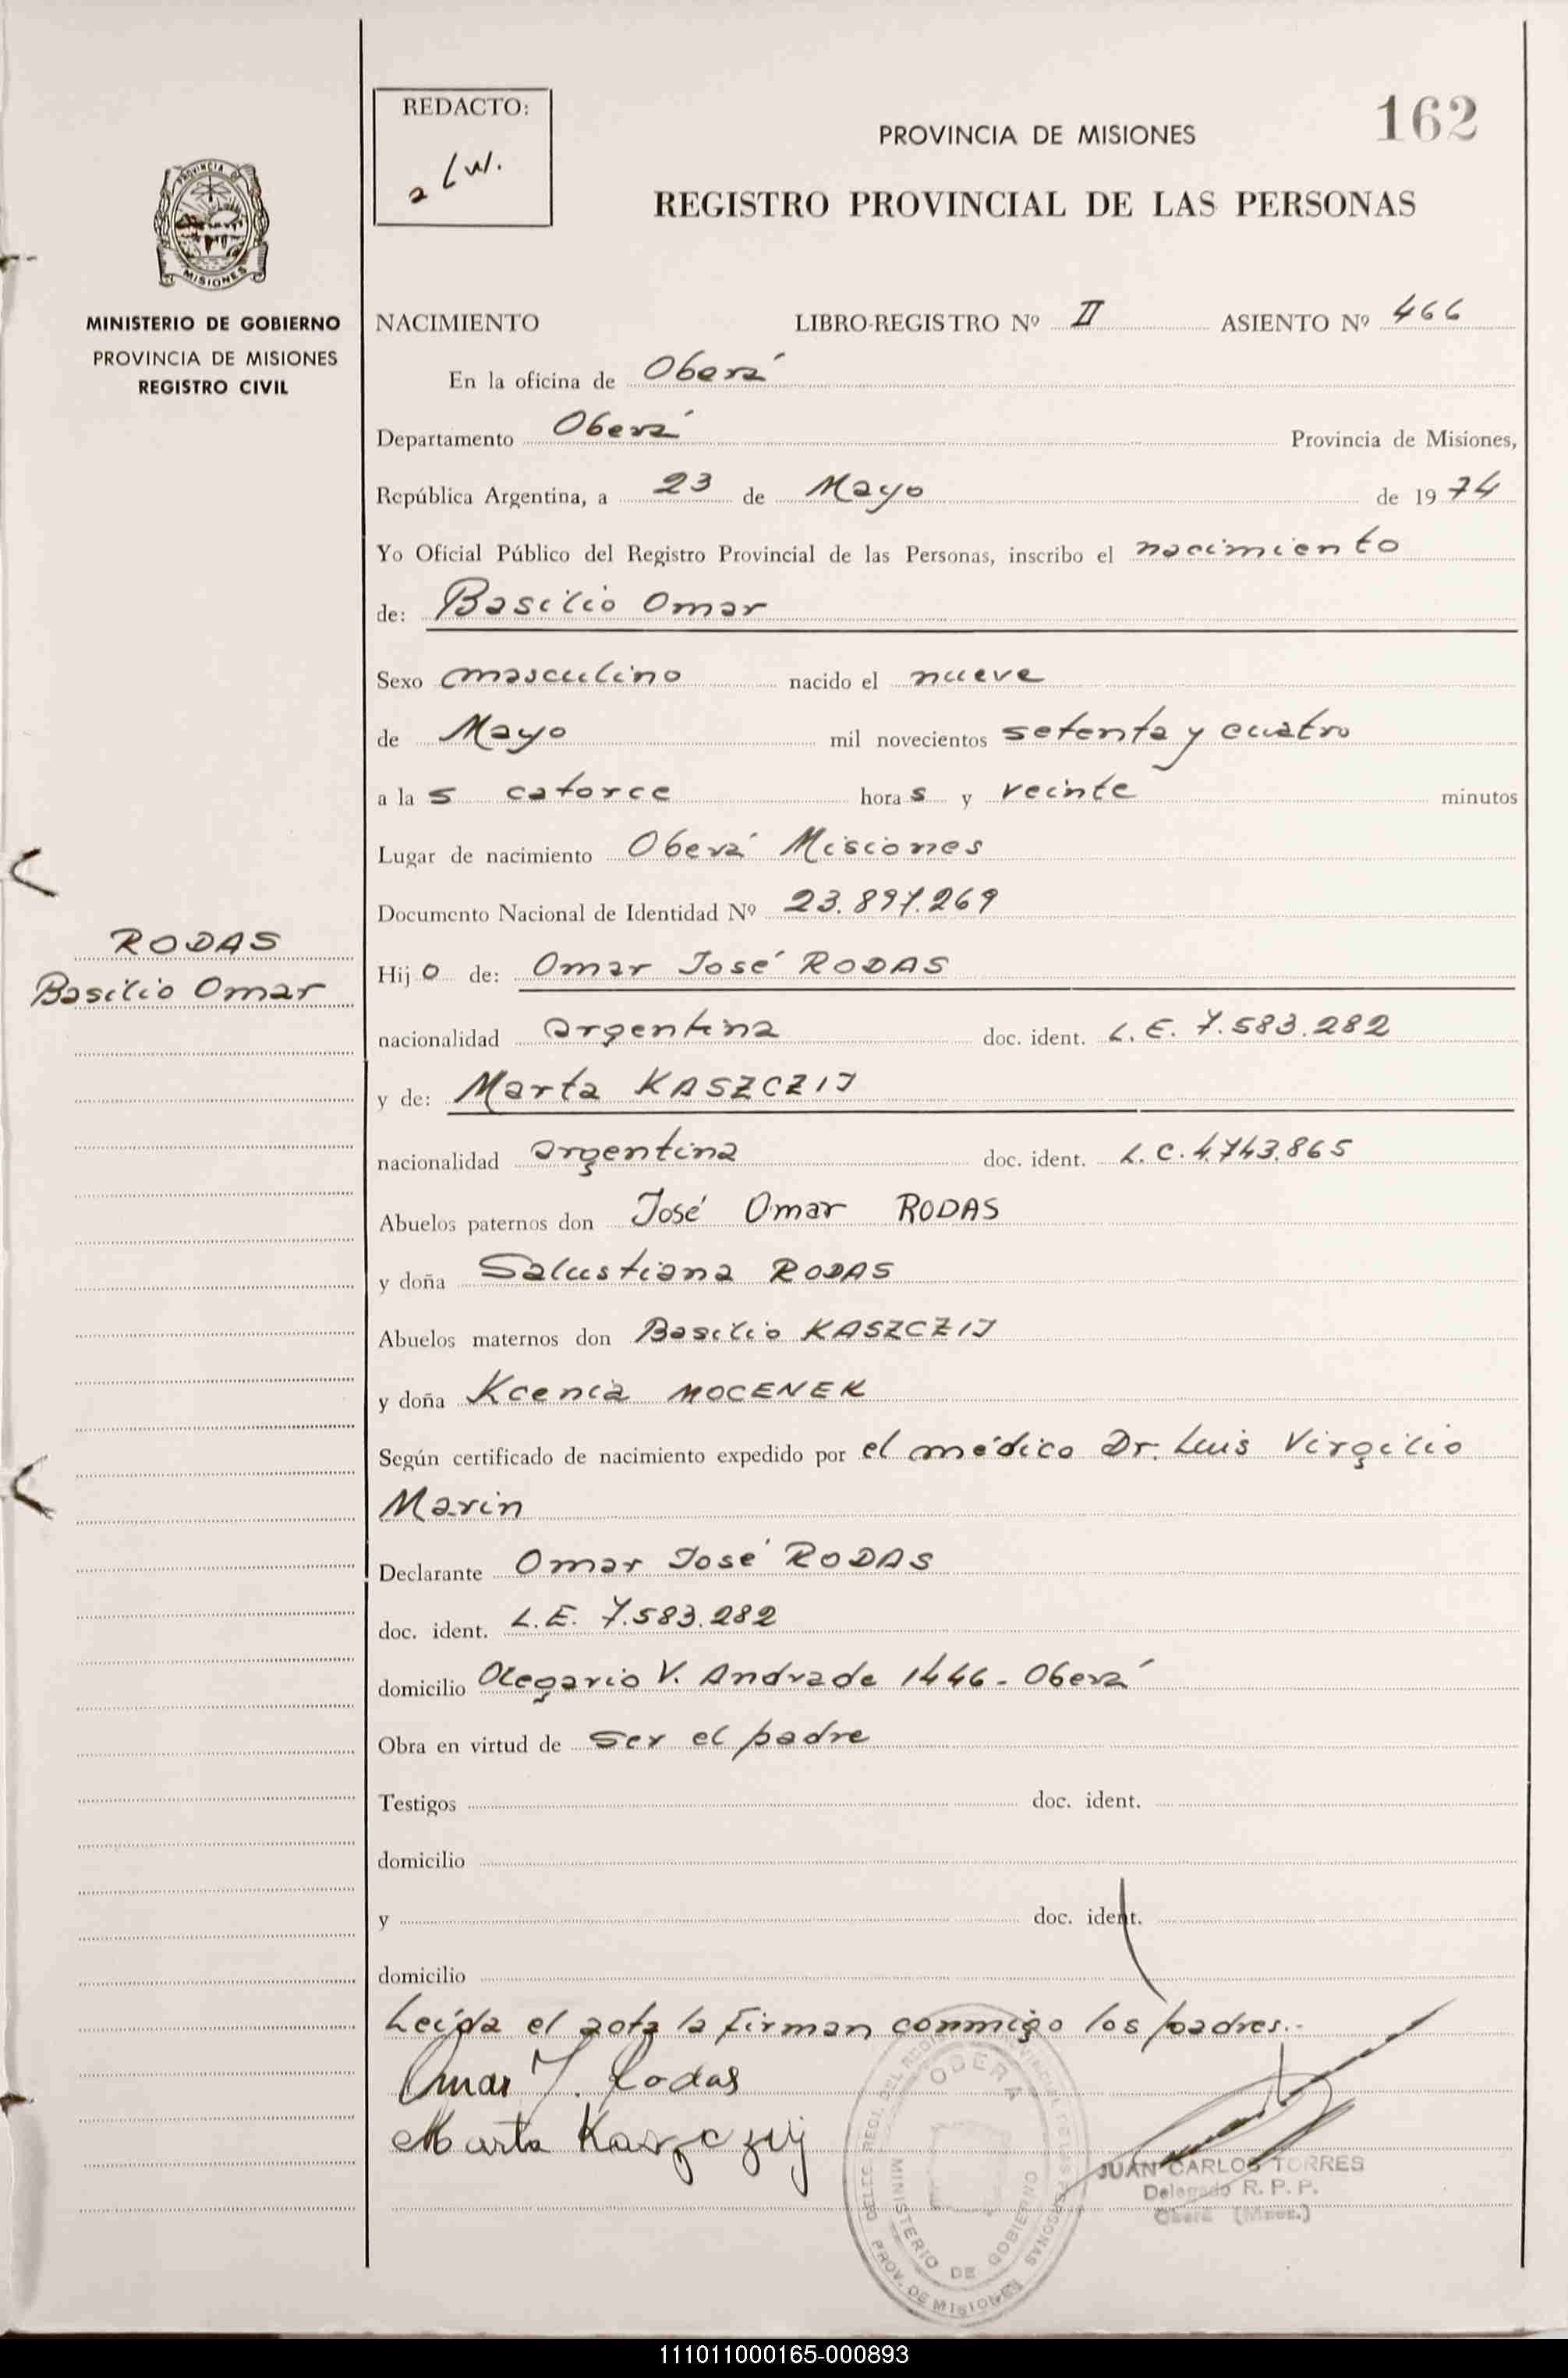 REDACTO:
162
PROVINCIA DE MISIONES
REGISTRO PROVINCIAL DE LAS PERSONAS
PROVINCIA DE
MISIONES
MINISTERIO DE GOBIERNO
PROVINCIA DE MISIONES
REGISTRO CIVIL
NACIMIENTO LIBRO-REGISTRO Nº II ASIENTO Nº 466
En la oficina de Oberá
Departamento Oberá Provincia de Misiones,
República Argentina, a 23 de Mayo de 1974
Yo Oficial Público del Registro Provincial de las Personas, inscribo el nacimiento
de: Basilio Omar
Sexo masculino nacido el nueve
de Mayo mil novecientos setenta y cuatro
a las catorce horas y veinte minutos
Lugar de nacimiento Oberá Misiones
Documento Nacional de Identidad Nº 23.897.269
RODAS
Basilio Omar
Hijo de: Omar José RODAS
nacionalidad argentina doc. ident. L.E. 7.583.282
y de: Marta KASZCZIJ
nacionalidad argentina doc. ident. L.C. 4.743.865
Abuelos paternos don José Omar RODAS
y doña Salustiana RODAS
Abuelos maternos don Basilio KASZCZIJ
y doña Kcenia MOCENEK
Según certificado de nacimiento expedido por el médico Dr. Luis Virgilio
Marin
Declarante Omar José RODAS
doc. ident. L.E. 7.583.282
domicilio Olegario V. Andrade 1446 - Oberá
Obra en virtud de ser el padre
Testigos doc. ident.
domicilio
y doc. ident.
domicilio
Leída el acta la firman conmigo los padres.-
Omar J. Rodas
Marta Kaszczij
OBERA
MINISTERIO DE GOBIERNO
PROV. DE MISIONES
JUAN CARLOS TORRES
Delegado R. P. P.
Oberá (Mnes.)
111011000165-000893